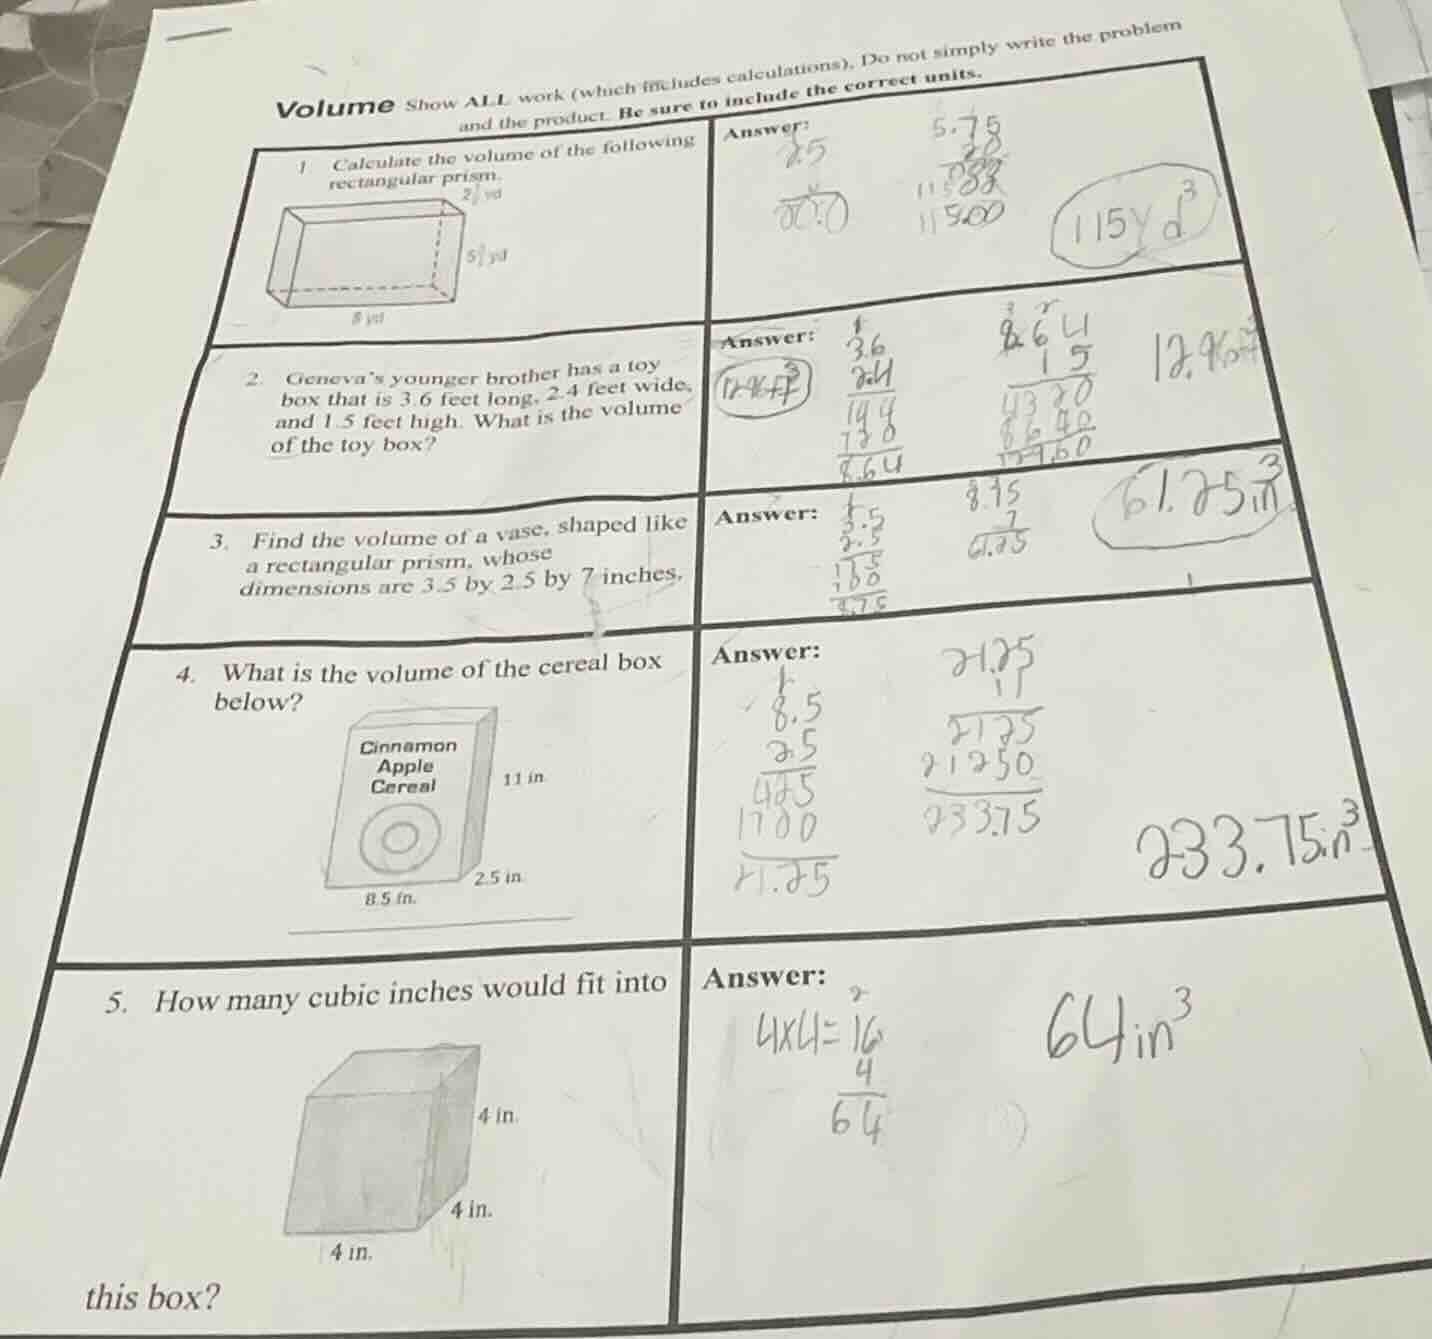 Volume Show ALL work (which includes calculations), Do not simply write the problem
and the product. Be sure to include the correct units.
1 Calculate the volume of the following
rectangular prism.
yd
yd
8 yd
Answer:
2.5
20.0
5.75
20
11500
115.00
115yd³
2. Geneva's younger brother has a toy
box that is 3.6 feet long, 2.4 feet wide,
and 1.5 feet high. What is the volume
of the toy box?
Answer:
12.96ft³
1
3.6
2.4
144
720
8.64
3 2
8.64
1 5
4320
8640
12960
12.96ft³
3. Find the volume of a vase, shaped like
a rectangular prism, whose
dimensions are 3.5 by 2.5 by 7 inches.
Answer:
3.5
2.5
175
700
8.75
8.75
7
61.25
61.25in³
4. What is the volume of the cereal box
below?
Cinnamon
Apple
Cereal
11 in.
2.5 in.
8.5 in.
Answer:
8.5
2.5
425
1700
21.25
21.25
11
2125
21250
233.75
233.75in³
5. How many cubic inches would fit into
4 in.
4 in.
4 in.
this box?
Answer:
2
4x4=16
4
64
64in³